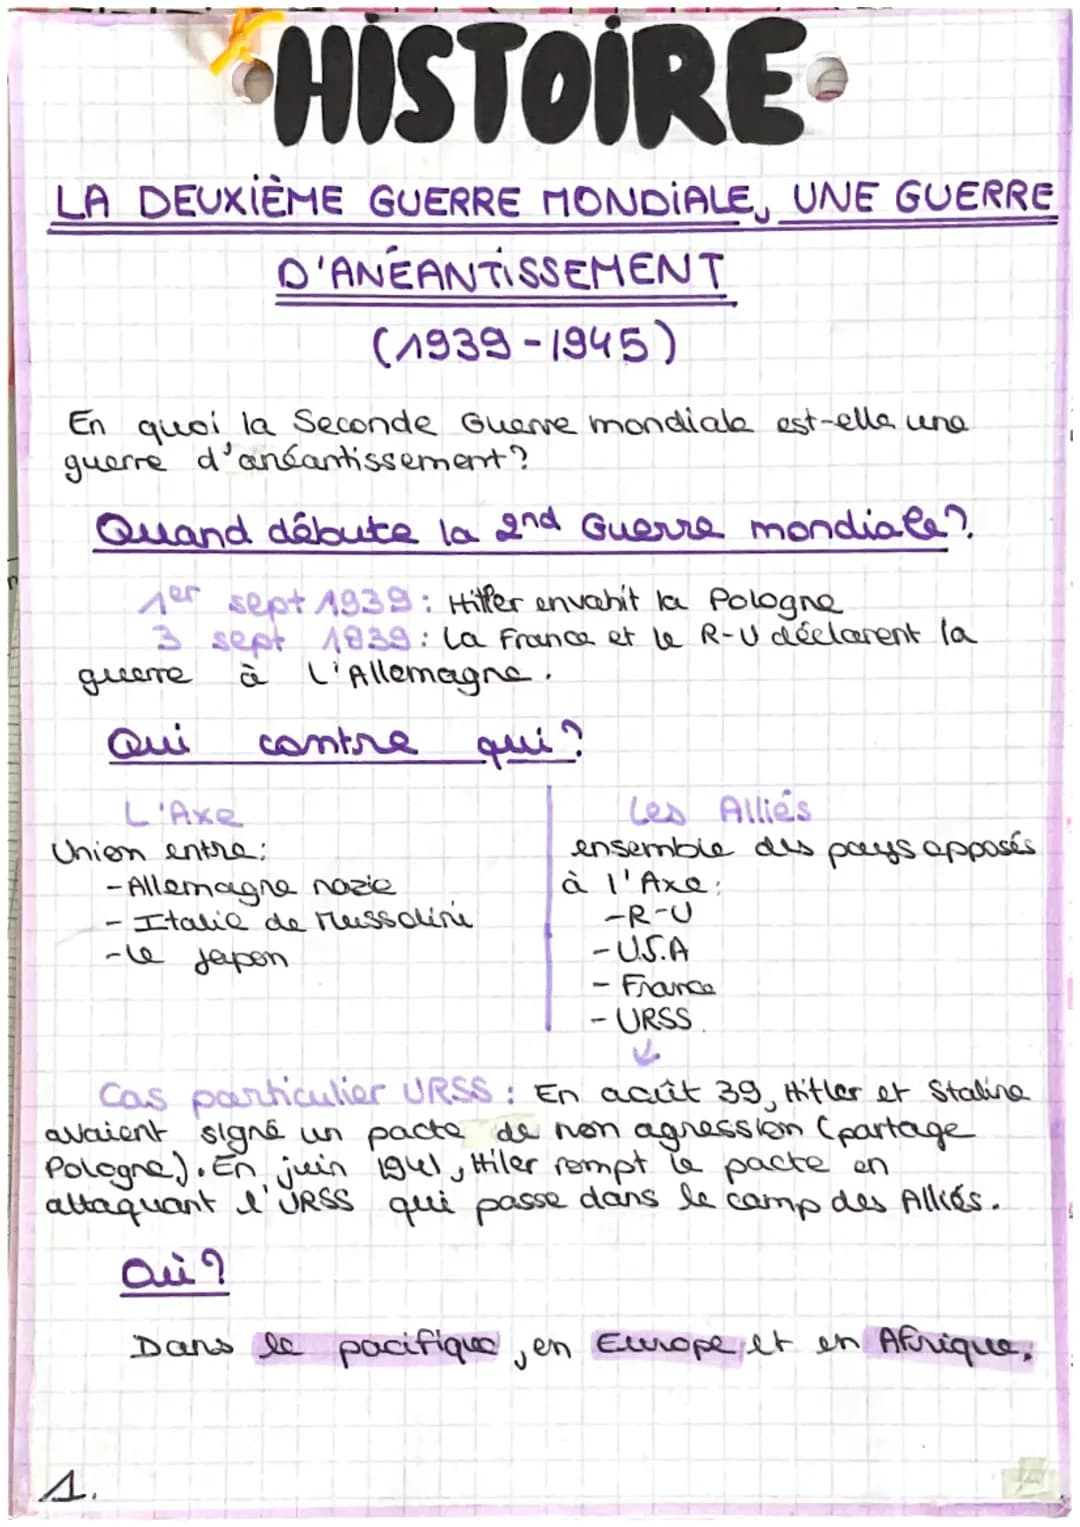 HISTOIRE
LA DEUXIÈME GUERRE MONDIALE, UNE GUERRE
D'ANÉANTISSEMENT
(1939-1945)
En quoi la Seconde Guerre mondiale est-elle une
guerre d'anéantissement?
Quand débute la 2nd Guerre mondiale?
1er sept 1939: Hitler envahit la Pologne
3 sept 1939: la France et le R-U déclarent la
guerre à l'Allemagne.
Qui contre qui?
L'Axe
Union entre:
-Allemagne nazie
- Italie de Mussolini
-le Japon
les Alliés
ensemble des pays opposés
à l'Axe:
-R-U
-U.S.A
- France
- URSS.
↓
Cas particulier URSS: En août 39, Hitler et Staline
avaient signé un pacte de non agression (partage
Pologne). En juin 1941, Hiler rompt le pacte en
attaquant l'URSS qui passe dans le camp des Alliés.
Où?
Dans le pacifique, en Europe et en Afrique.
1.